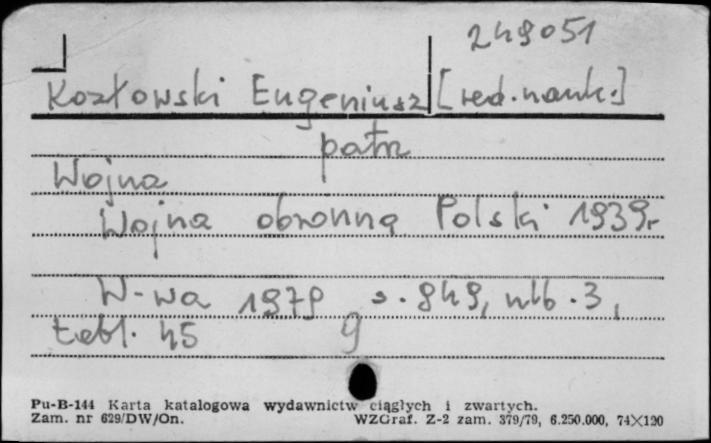 249051
Kozłowski Eugeniusz [red. nauk.]
patrz
Wojna
Wojna obronna Polski 1939r
W-wa 1979 s. 849, nlb. 3,
tabl. 45 9
Pu-B-144 Karta katalogowa wydawnictw ciągłych i zwartych.
Zam. nr 629/DW/On. WZGraf. Z-2 zam. 379/79, 6.250.000, 74×120